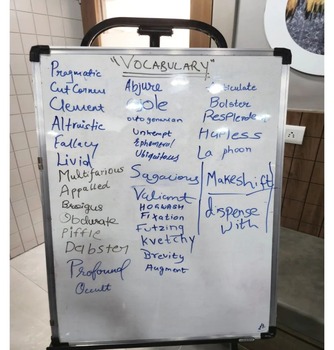 "VOCABULARY"
Pragmatic
Cut Corners
Clement
Altruistic
Fallacy
Livid
Multifarious
Appalled
Obdurate
Piffle
Dabster
Profound
Occult
Abjure
octogenarian
Unkempt
Ephemeral
Ubiquitous
Sagacious
Valiant
HOGWASH
Fixation
Futzing
Kvetchy
Brevity
Augment
Bolster
Resplendent
La phoon
Makeshift
dispense
with